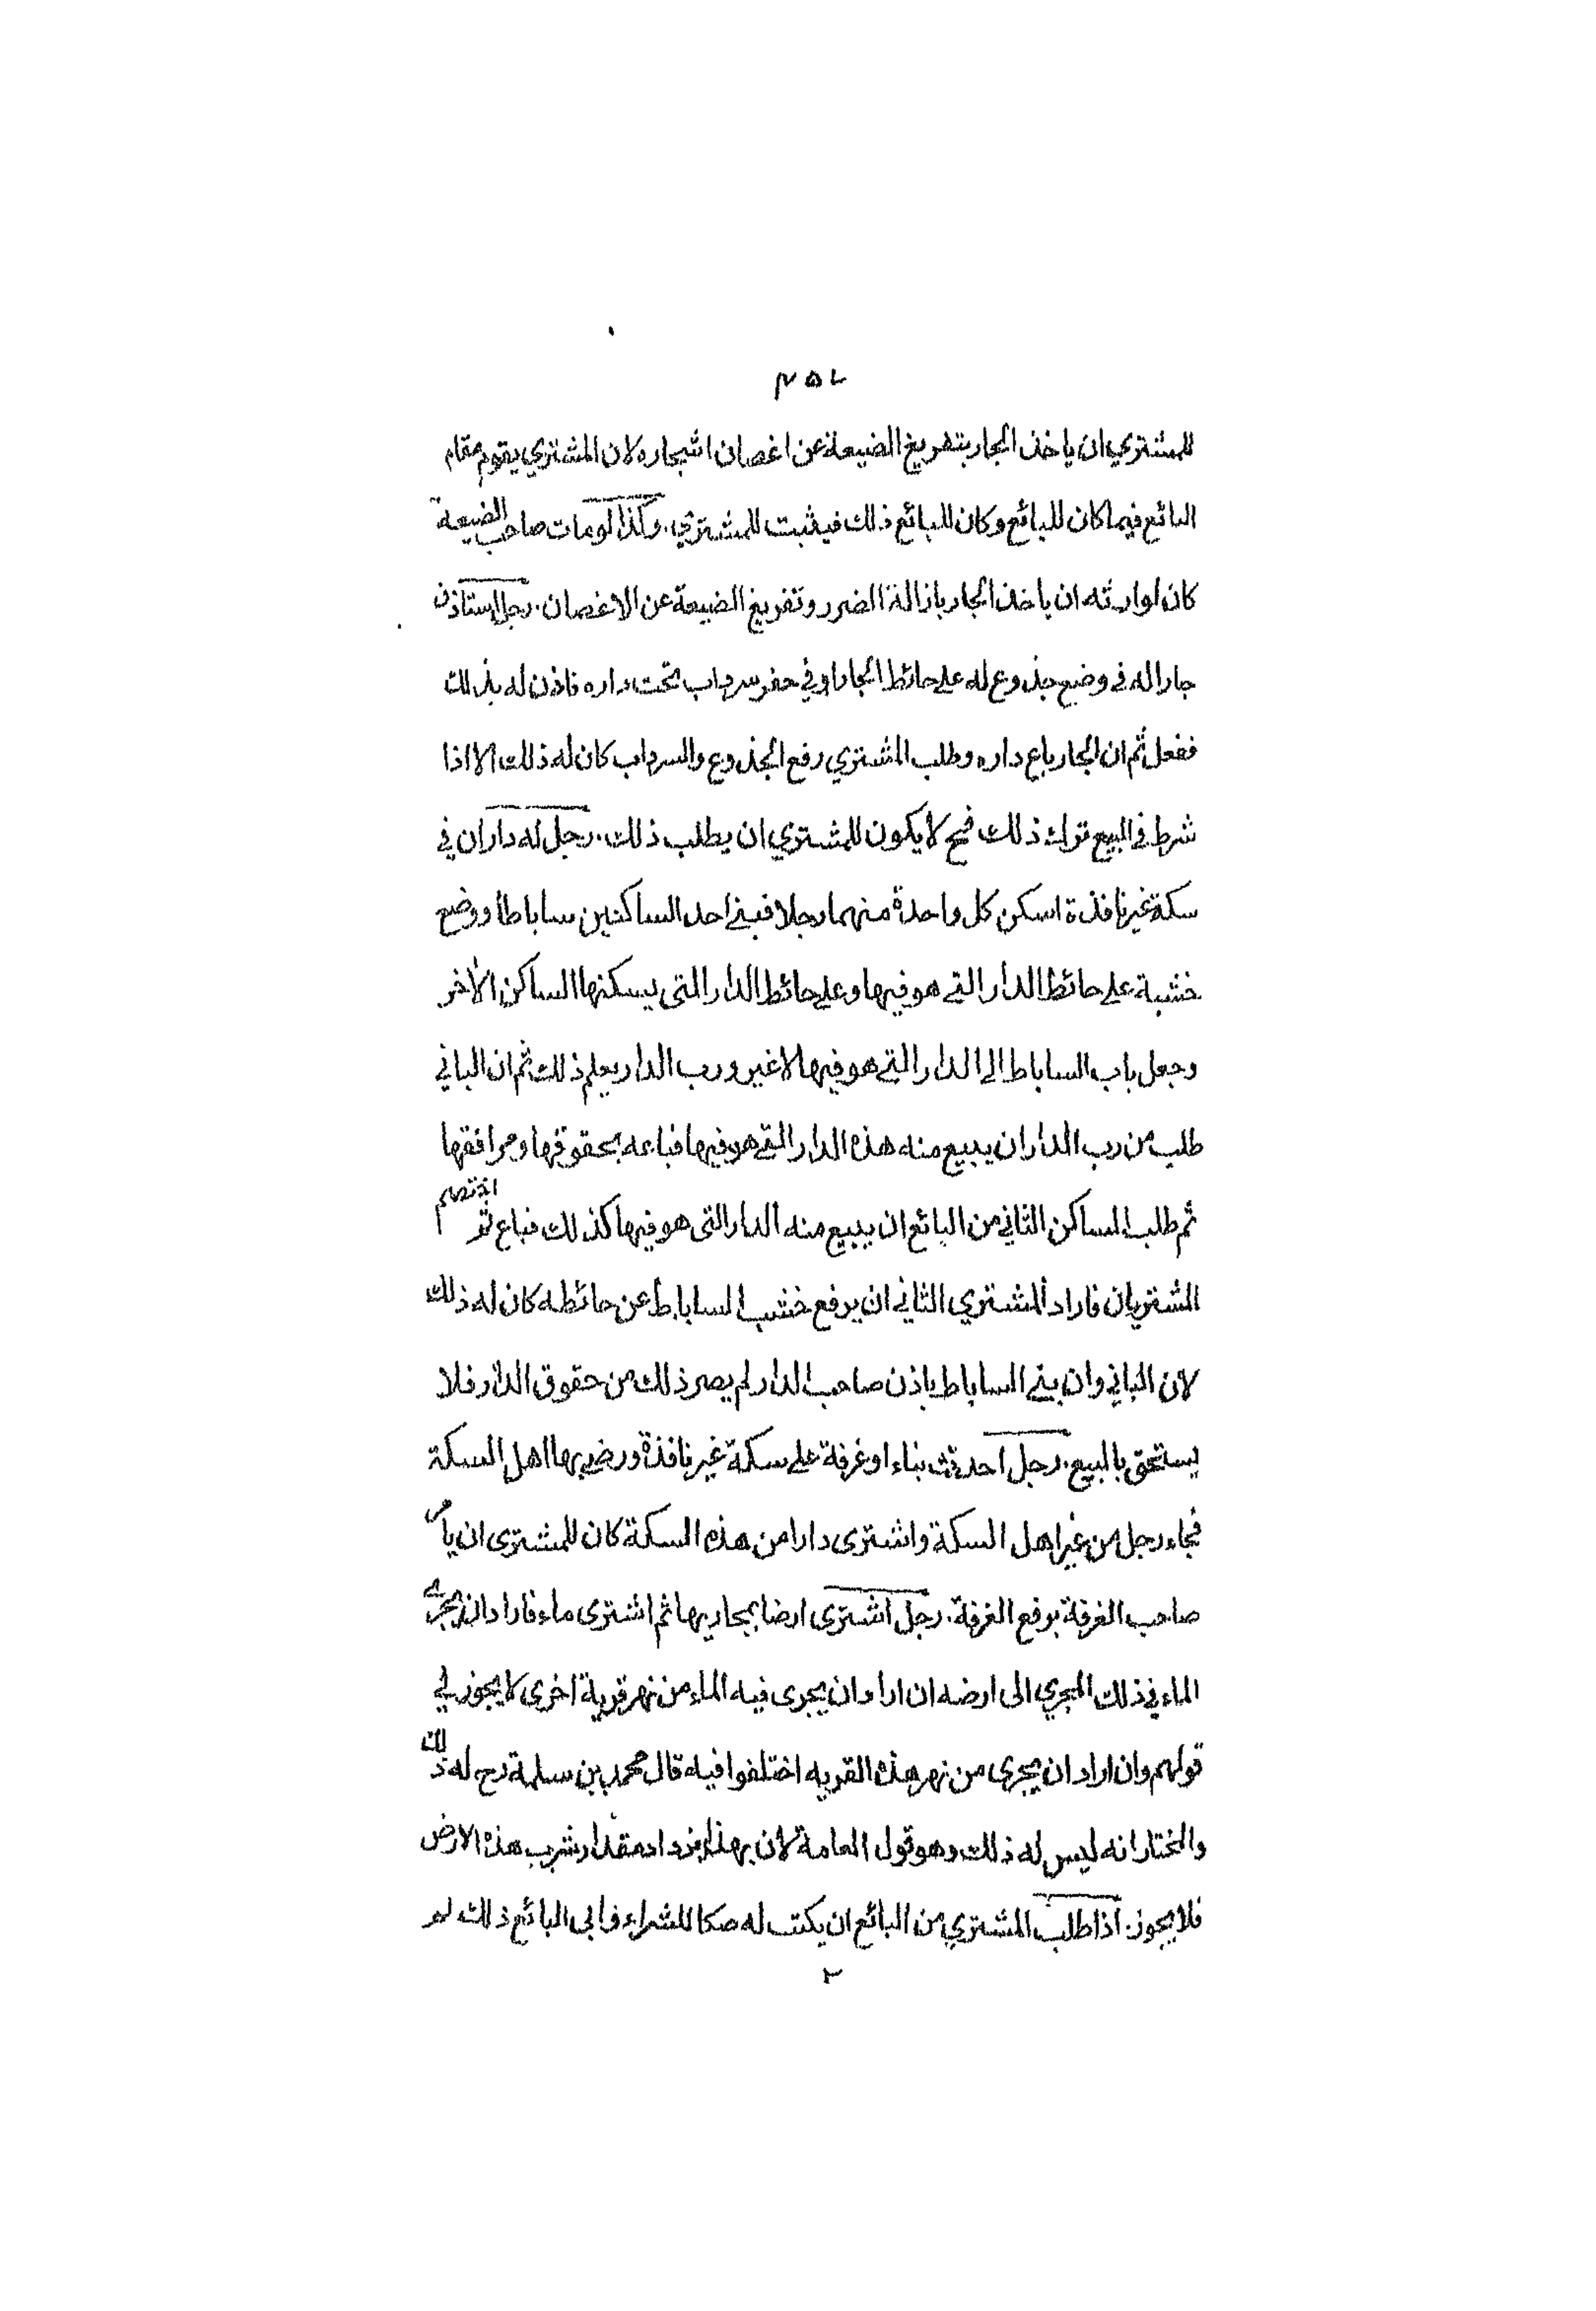 ٢٥٢
للمشتري ان ياخذ الجار بتفريغ الضيعة عن اغصان اشجاره لان المشتري يقوم مقام
البائع فيما كان للبائع وكان للبائع ذلك فيثبت للمشتري. وكذا لومات صاحب الضيعة
كان لوارثه ان ياخذ الجار بازالة الضرر وتفريغ الضيعة عن الاغصان. رجل استاذن
جارا له في وضع جذوع له على حائط الجار او في حفر سرداب تحت داره فاذن له بذلك
ففعل ثم ان الجار باع داره وطلب المشتري رفع الجذوع والسرداب كان له ذلك الا اذا
شرط في البيع ترك ذلك فح لا يكون للمشتري ان يطلب ذلك. رجل له داران في
سكة غير نافذة اسكن كل واحدة منهما رجلا فبنى احد الساكنين ساباطا ووضع
خشبة على حائط الدار التي هو فيها وعلى حائط الدار التى يسكنها الساكن الاخر
وجعل باب الساباط الى الدار التي هو فيها لاغير ورب الدار يعلم ذلك ثم ان الباني
طلب من رب الدار ان يبيع منه هذه الدار التي هو فيها فباعه بحقوقها ومرافقها
ثم طلب الساكن الثاني من البائع ان يبيع منه الدار التى هو فيها كذلك فباع ثم اختصم
المشتريان فاراد المشتري الثاني ان يرفع خشب الساباط عن حائطه كان له ذلك
لان الباني وان بنى الساباط باذن صاحب الدار لم يصر ذلك من حقوق الدار فلا
يستحق بالبيع. رجل احدث بناء او غرفة على سكة غير نافذة ورضي بها اهل السكة
فجاء رجل من غير اهل السكة واشترى دارا من هذه السكة كان للمشترى ان يامر
صاحب الغرفة برفع الغرفة. رجل اشترى ارضا بمجاريها ثم اشترى ماء فاراد ان يجرى
الماء في ذلك المجري الى ارضه ان اراد ان يجرى فيه الماء من نهر قرية اخرى لا يجوز في
قولهم وان اراد ان يجرى من نهر هذه القريه اختلفوا فيه قال محمد بن سلمة رح له ذلك
والمختار انه ليس له ذلك وهو قول العامة لان بهذا يزداد مقدار شرب هذه الارض
فلا يجوز. اذا طلب المشتري من البائع ان يكتب له صكا للشراء فابى البائع ذلك لم
٢